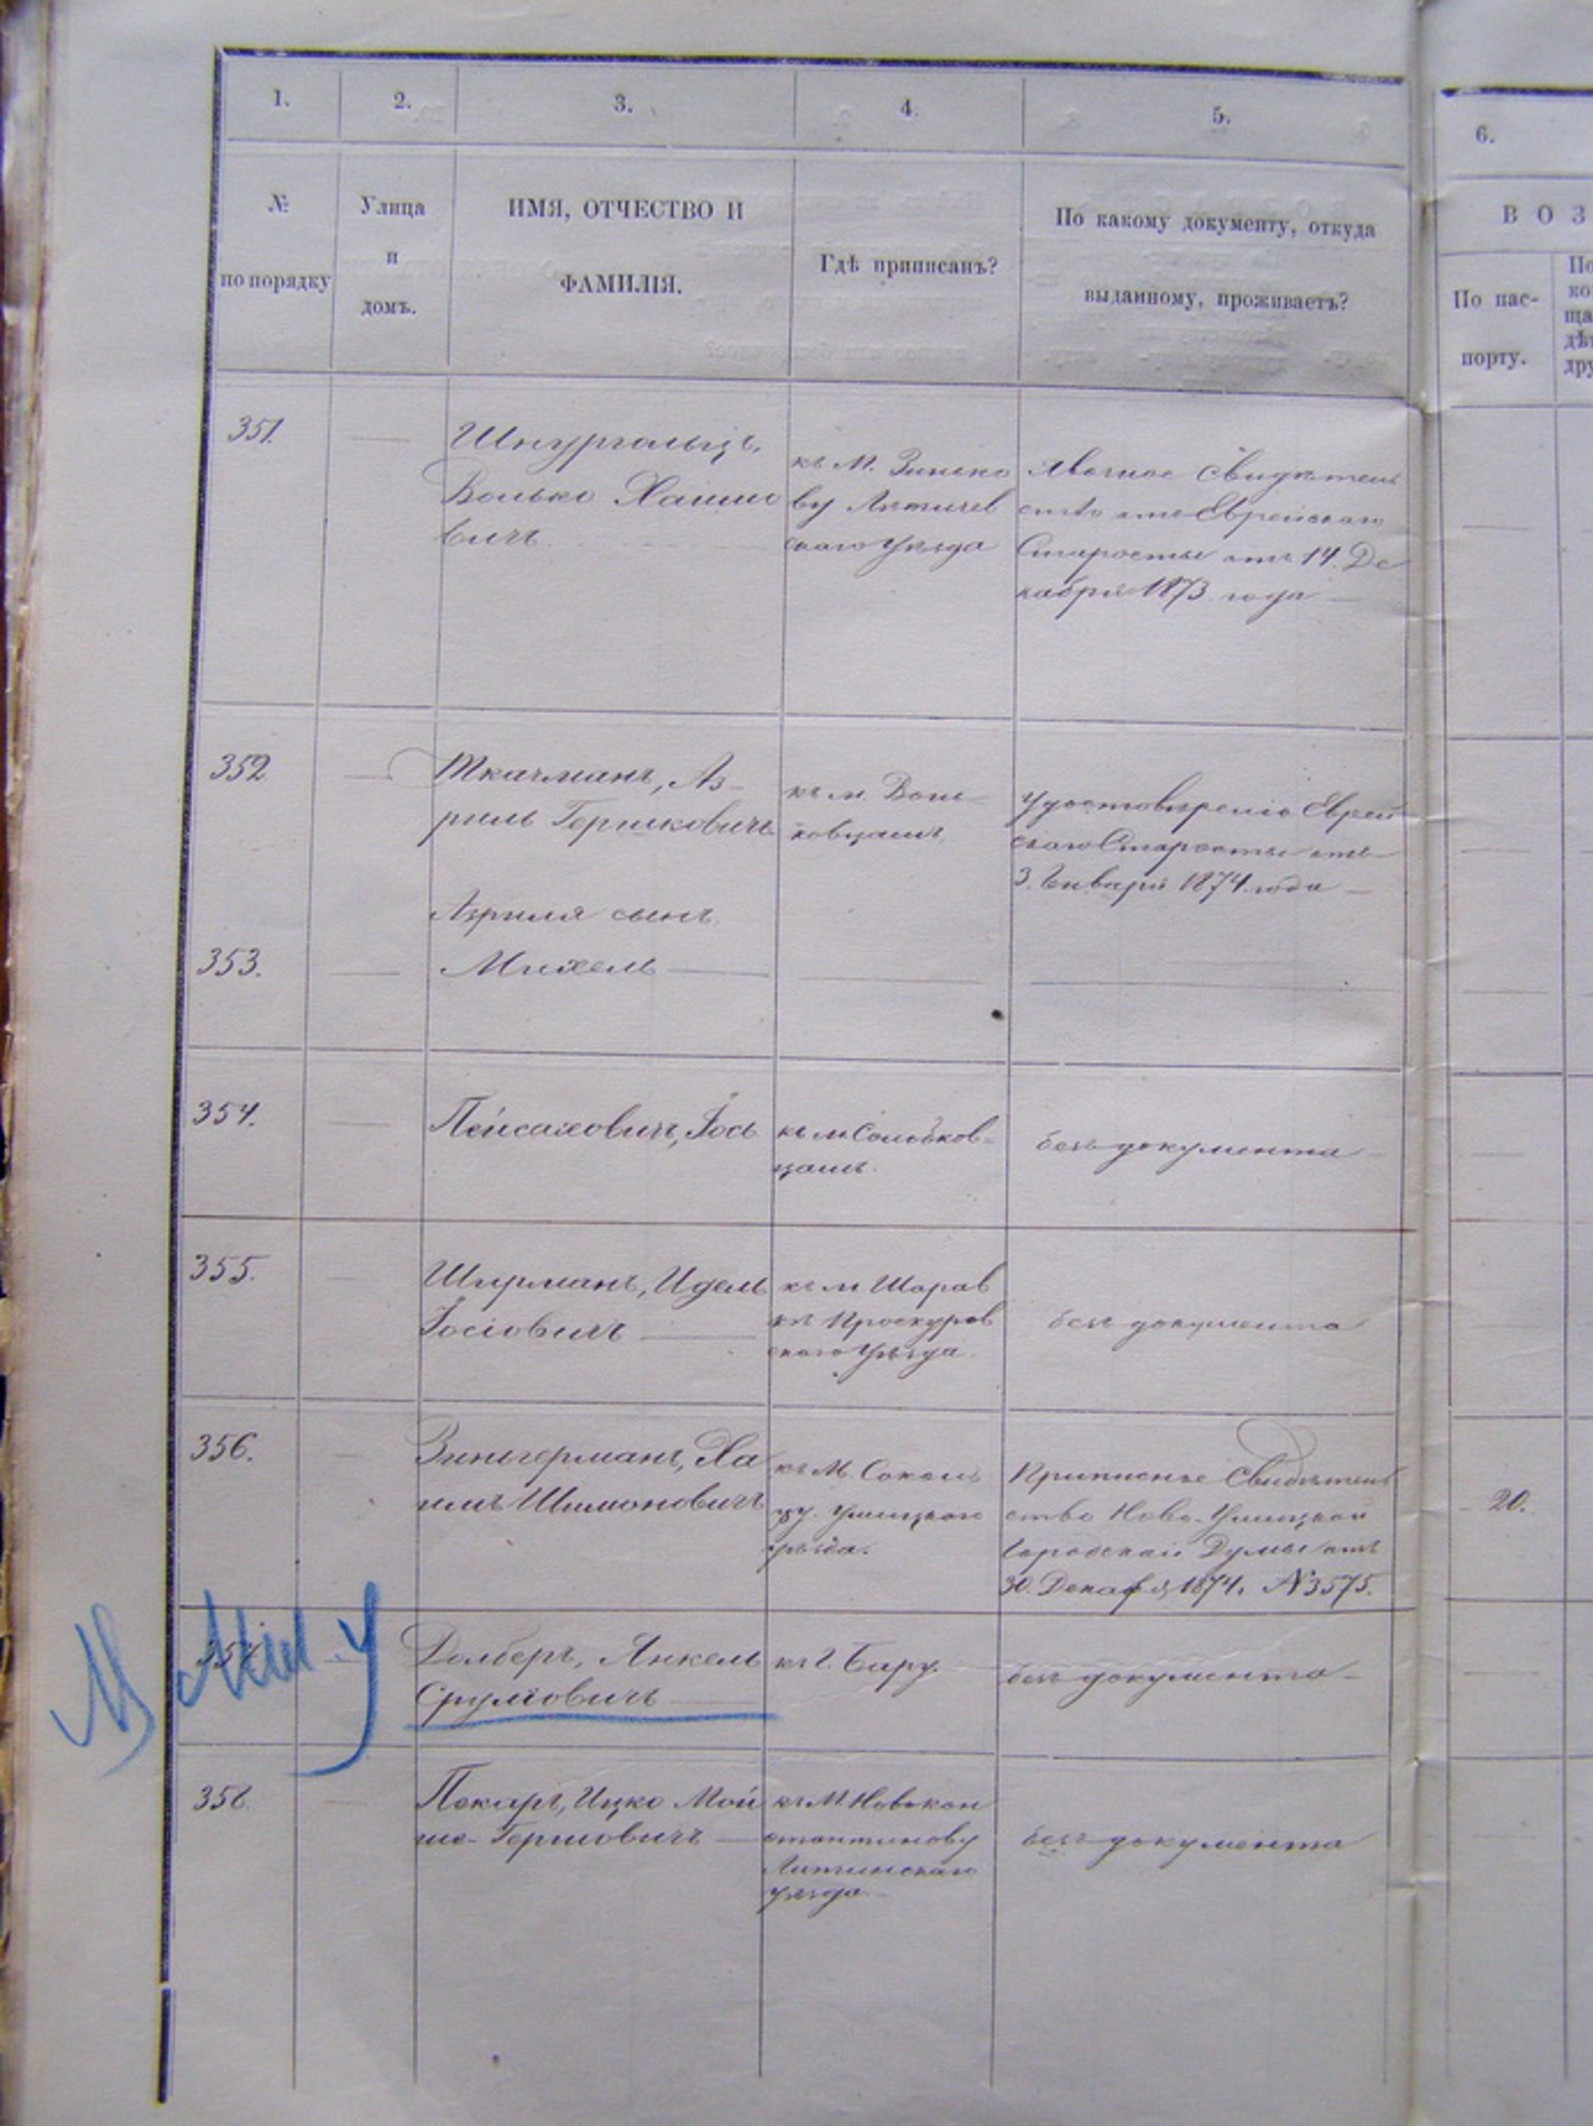 1.
2.
3.
4.
5.
6.
№
по порядку
Улица
и
домъ.
ИМЯ, ОТЧЕСТВО И
ФАМИЛІЯ.
Гдѣ приписанъ?
По какому документу, откуда
выданному, проживаетъ?
В О З
По пас-
порту.
351.
Шнургальцъ,
Волько Хаимо
вичъ
къ М. Зинько
ву Летичев
скаго уѣзда
Явочное Свидѣтель
ство отъ Еврейскаго
Старосты отъ 14 Де
кабря 1873 года
352
Ткачманъ, Аз-
риль Гершковичъ
къ м. Вонь-
ковцамъ,
Удостовѣреніе Еврей
скаго Старосты отъ
3. Января 1874 года
353.
Азриля сынъ
Михель
354.
Пейсаховичъ, Іось
къ м. Солобков-
цамъ.
безъ документа
355.
Ширманъ, Идель
Іосіовичъ
къ м Шарав
кѣ Проскуров
скаго уѣзда.
безъ документа
356.
Зингерманъ, Ха
имъ Шимоновичъ
къ М. Соколь
цу. Ушицкаго
уѣзда.
Приписное Свидѣтель
ство Ново-Ушицкой
Городской Думы отъ
30. Декабря 1874. №3575.
20.
М
У
357
Долберъ, Янкель
Сруліовичъ
къ г. Бару.
безъ документа
358
Пекарь, Ицко Мой
ше-Гершовичъ
къ М. Новокон
стантинову
Литинскаго
уѣзда
безъ документа